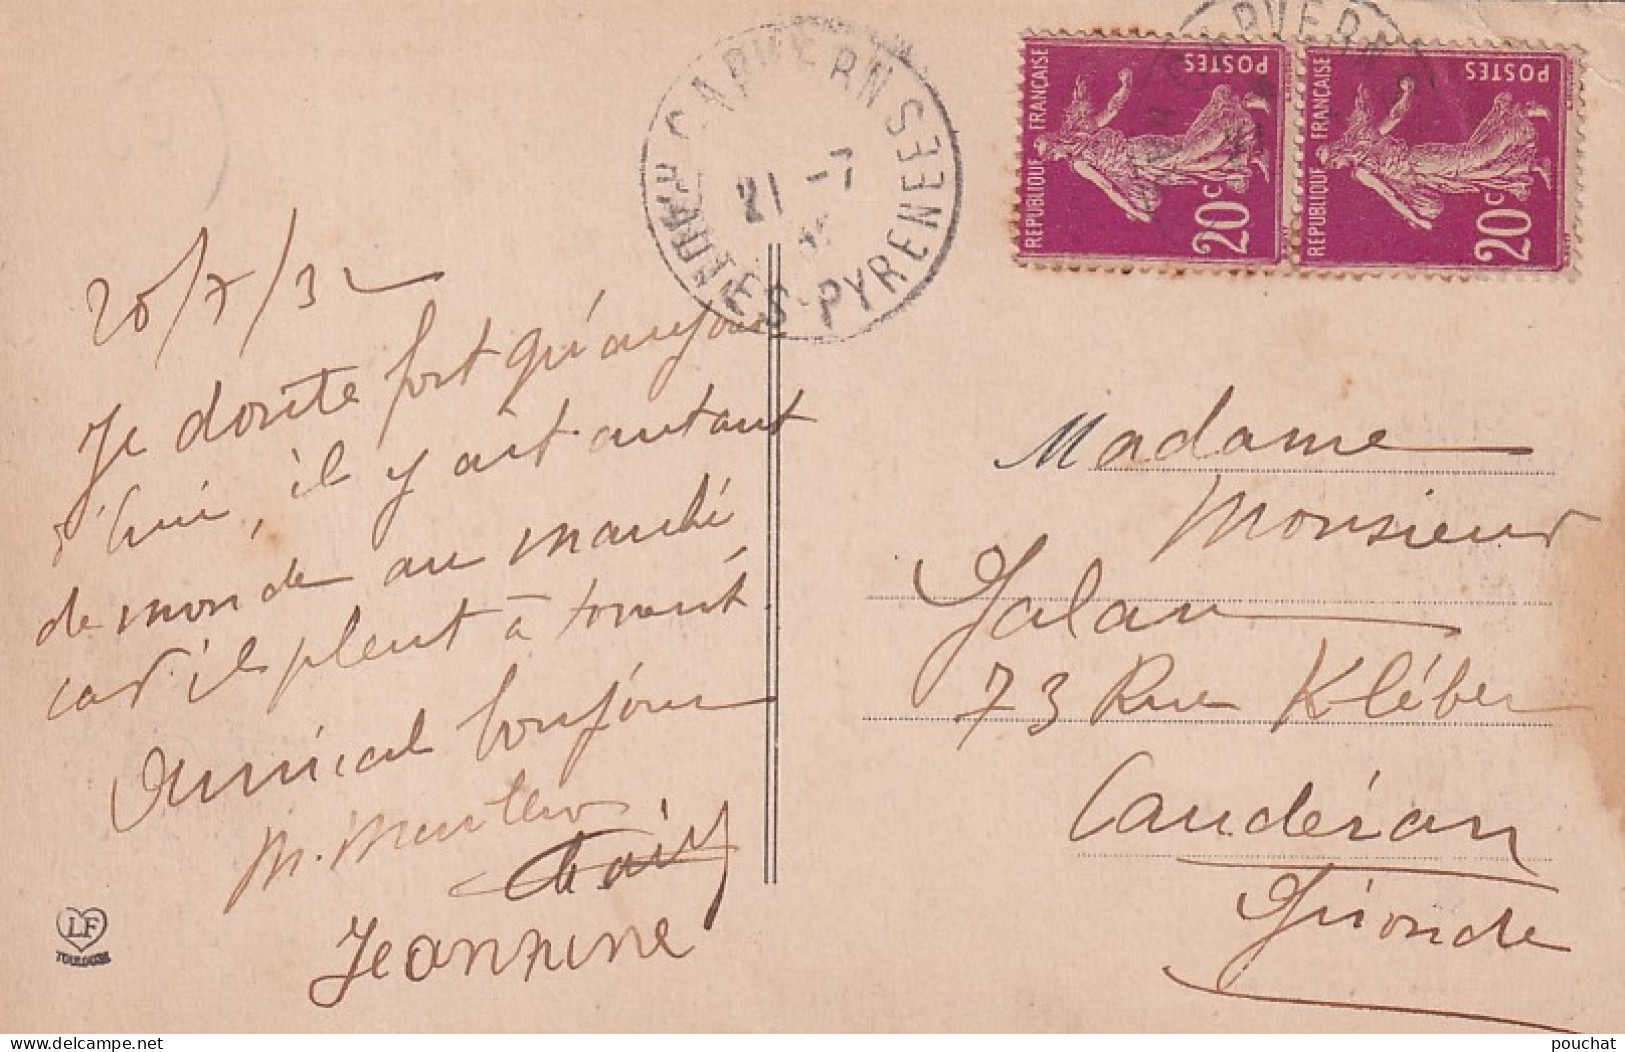 CAPVERN
21 -7
HAUTES-PYRENEES
REPUBLIQUE FRANÇAISE
POSTES
20c
REPUBLIQUE FRANÇAISE
POSTES
20c
20/7/32
Je doute fort qu'aujour
d'hui, il y ait autant
de monde au marché
car il pleut à torrent.
Amical bonjour
M.
Jeannine
LF
TOULOUSE
Madame
Monsieur
Jalau
73 Rue Kléber
Caudéran
Gironde
pouchat
www.delcampe.net